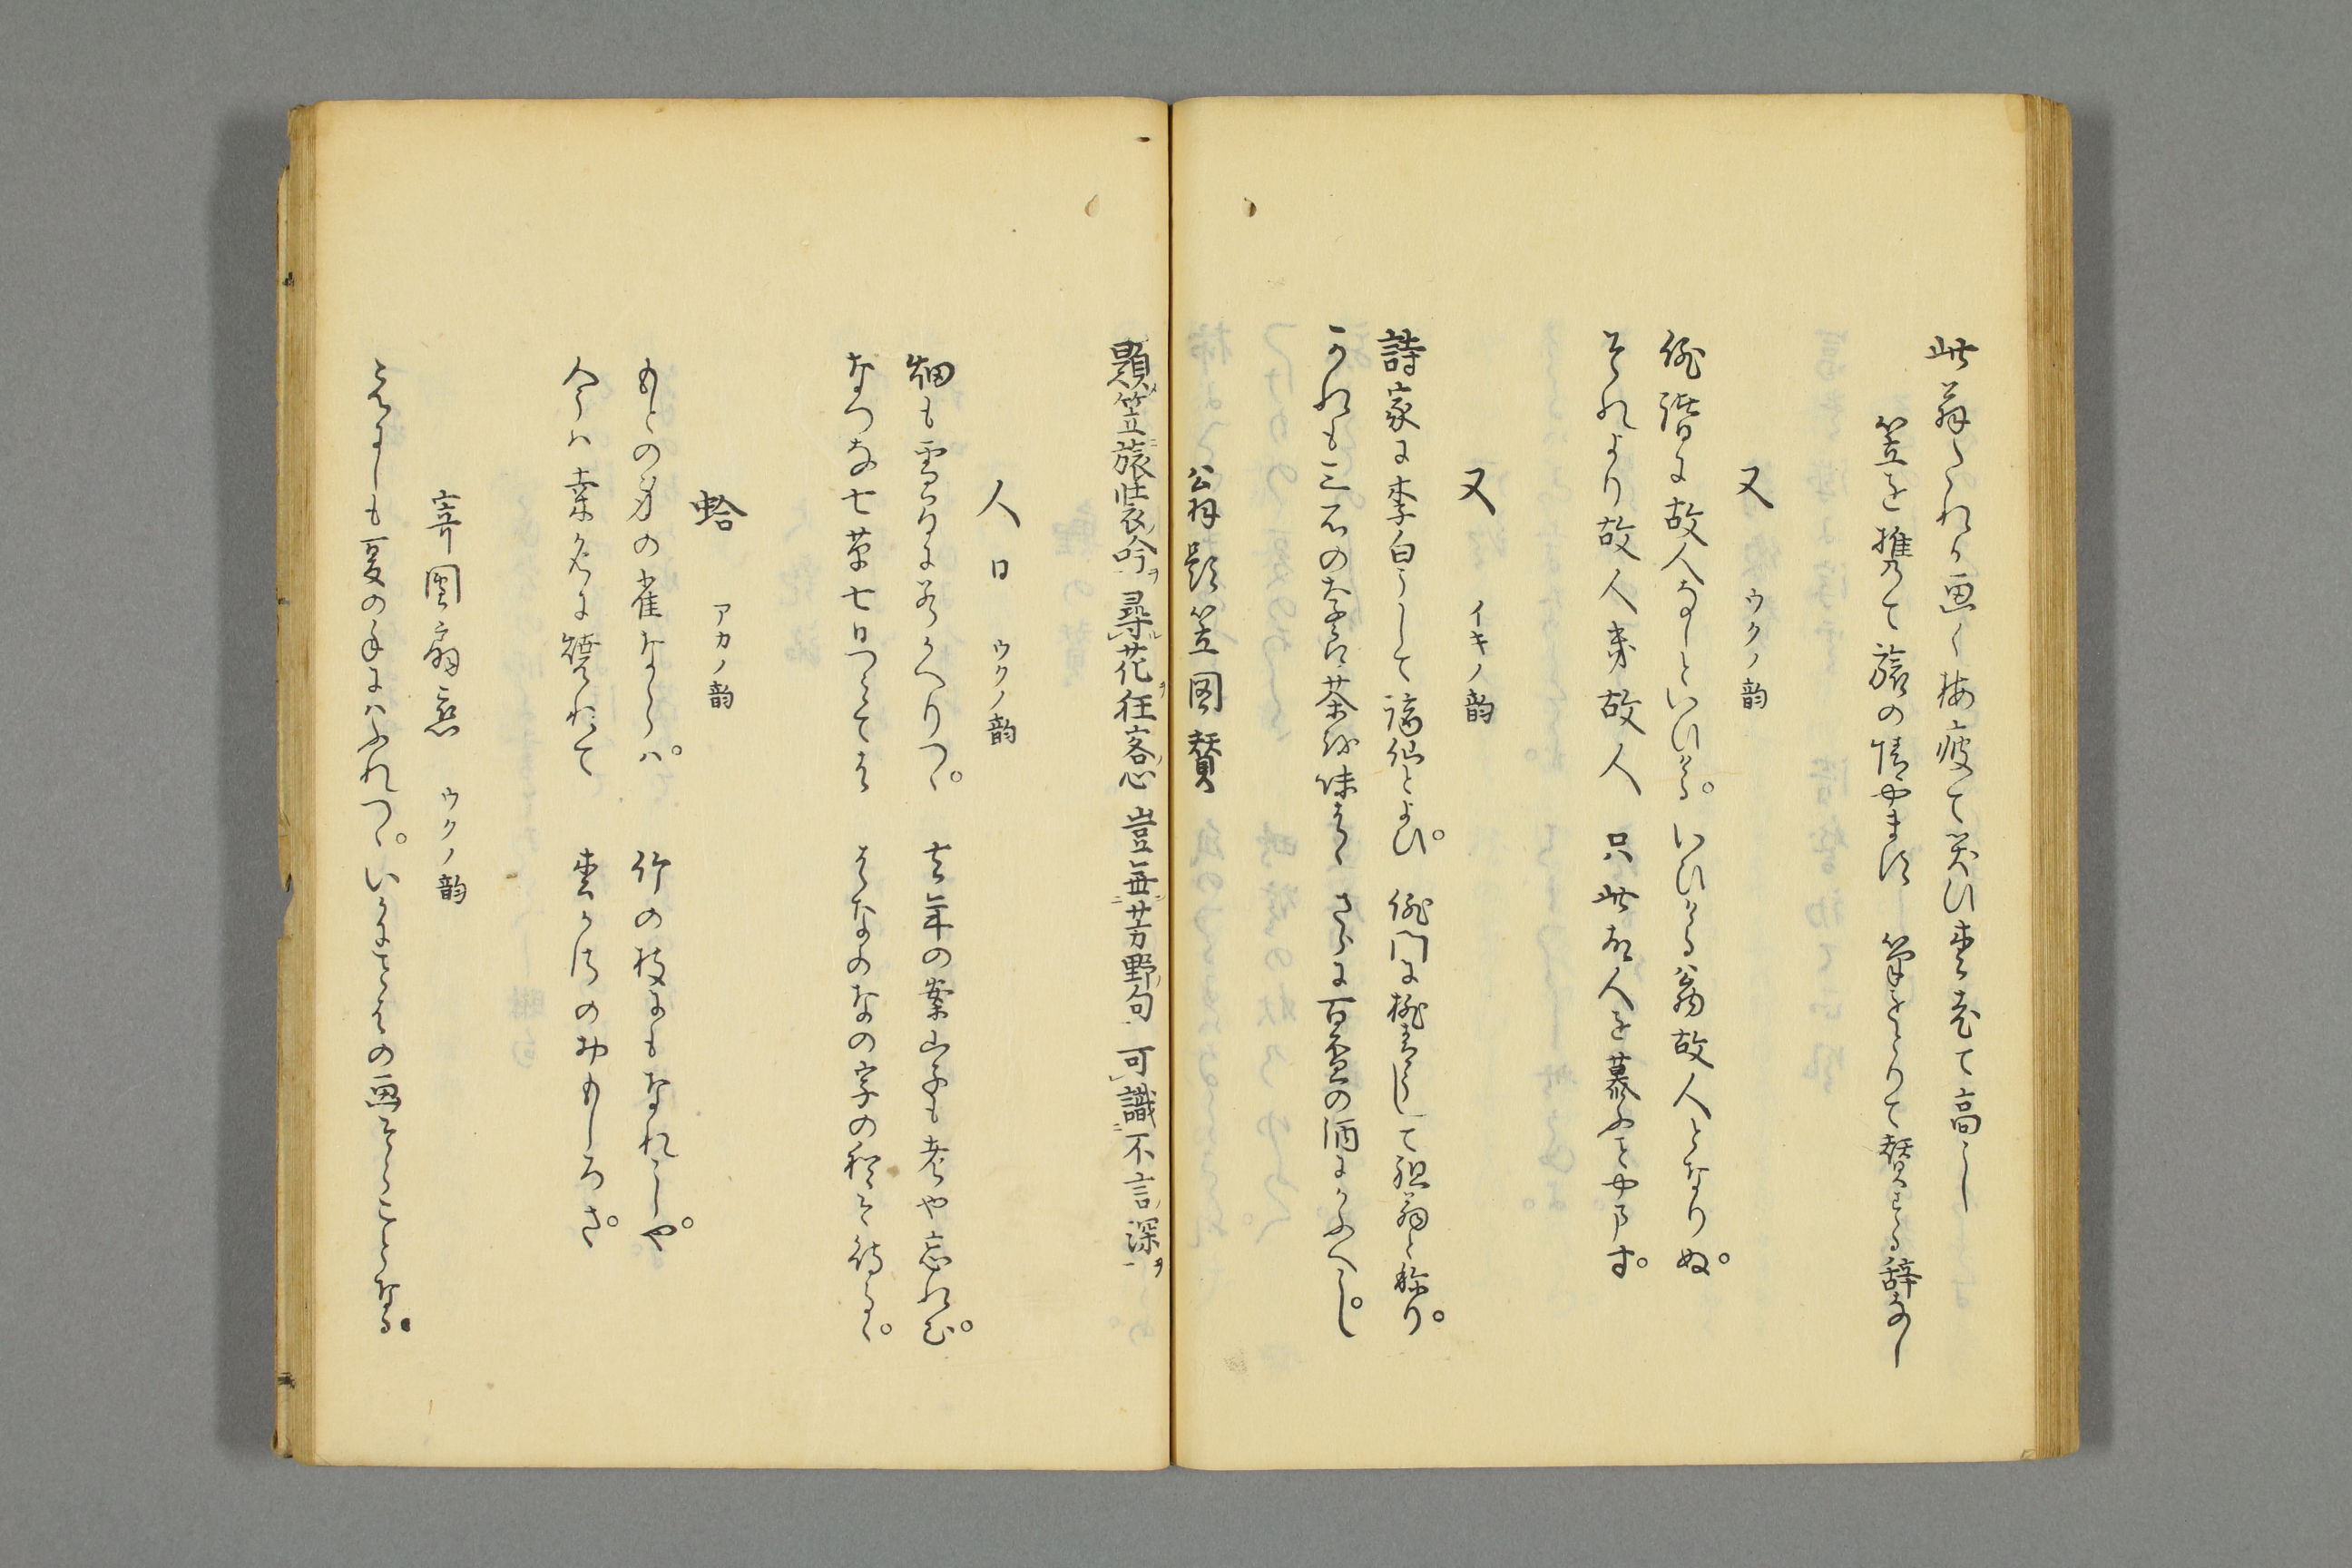 此翁たれか画く梅痩て笑ひ雲老て高し
笠を携て旅の情やます 筆をとりて賛する辞なし
又 ウクノ韵
俳諧に故人なしといひける。いひける翁故人となりぬ。
それより故人来故人 只此故人を慕ふとや申す。
又 イキノ韵
詩家に李白うして謫仙とよひ。俳門に桃青くして祖翁と称り。
かれも三石の奈良茶を味はゝ さらに百盃の酒にかふへし。
翁題笠図賛
題笠旅装吟 尋花狂客心 豈無芳野句 可識不言深
人日 ウクノ韵
畑も雪もに若かへりつゝ。去年の案山子も老や忘れむ。
なつな七草七日つとては はなのなの字の程そ待るゝ。
蛤 アカノ韵
もとの身の雀ならは。竹の枝にもなれしや。
今は桑名に焼れて 雲かすのおもしろさ。
寄団扇恋 ウクノ韵
えにしも夏の手にはふれつゝ。いかにさその画そらことなる。